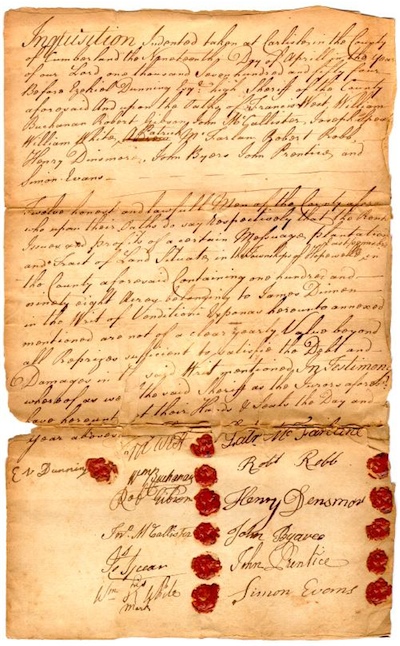 Inquisition Indented taken at Carlisle in the County
of Cumberland the Day of Aprill in the Year
of our Lord one thousand Seven hundred and fifty four
Before Ezekiel Dunning Esqr. high Sheriff of the County
aforesaid and upon the Oaths of Francis West, William
Buchanan Robert Gibson John McCallister, Joseph
William White, Patrick McFarlan Robert Robb
Henry Dinsmore, John Byers John Prentice and
Simon Evans
Twelve honest and lawfull Men of the County afores
who upon their Oaths do say Respectively that the Rents
Issues and profits of a certain Messuage, plantation
and Tract of Land Situate in the Township of Hopewell in
the County aforesaid Containing one hundred and
ninety eight Acres belonging to James
in the Writ of Venditioni Exponas hereunto annexed
mentioned are not of a clear Yearly Value beyond
all Reprizes sufficient to satisfie the Debt and
Damages in said Writ mentioned, In Testimon
whereof as we the said Sheriff as the Jurors afores
have hereunt their Hands & Seals the Day and
Year above
West Patr McFarlane
E z Dunning Wm Buchanan Robt Robb
Robt Gibson Henry Densmor
Jno. McCallister John Byares
John Prentice
Wm his White Simon Evans
Mark